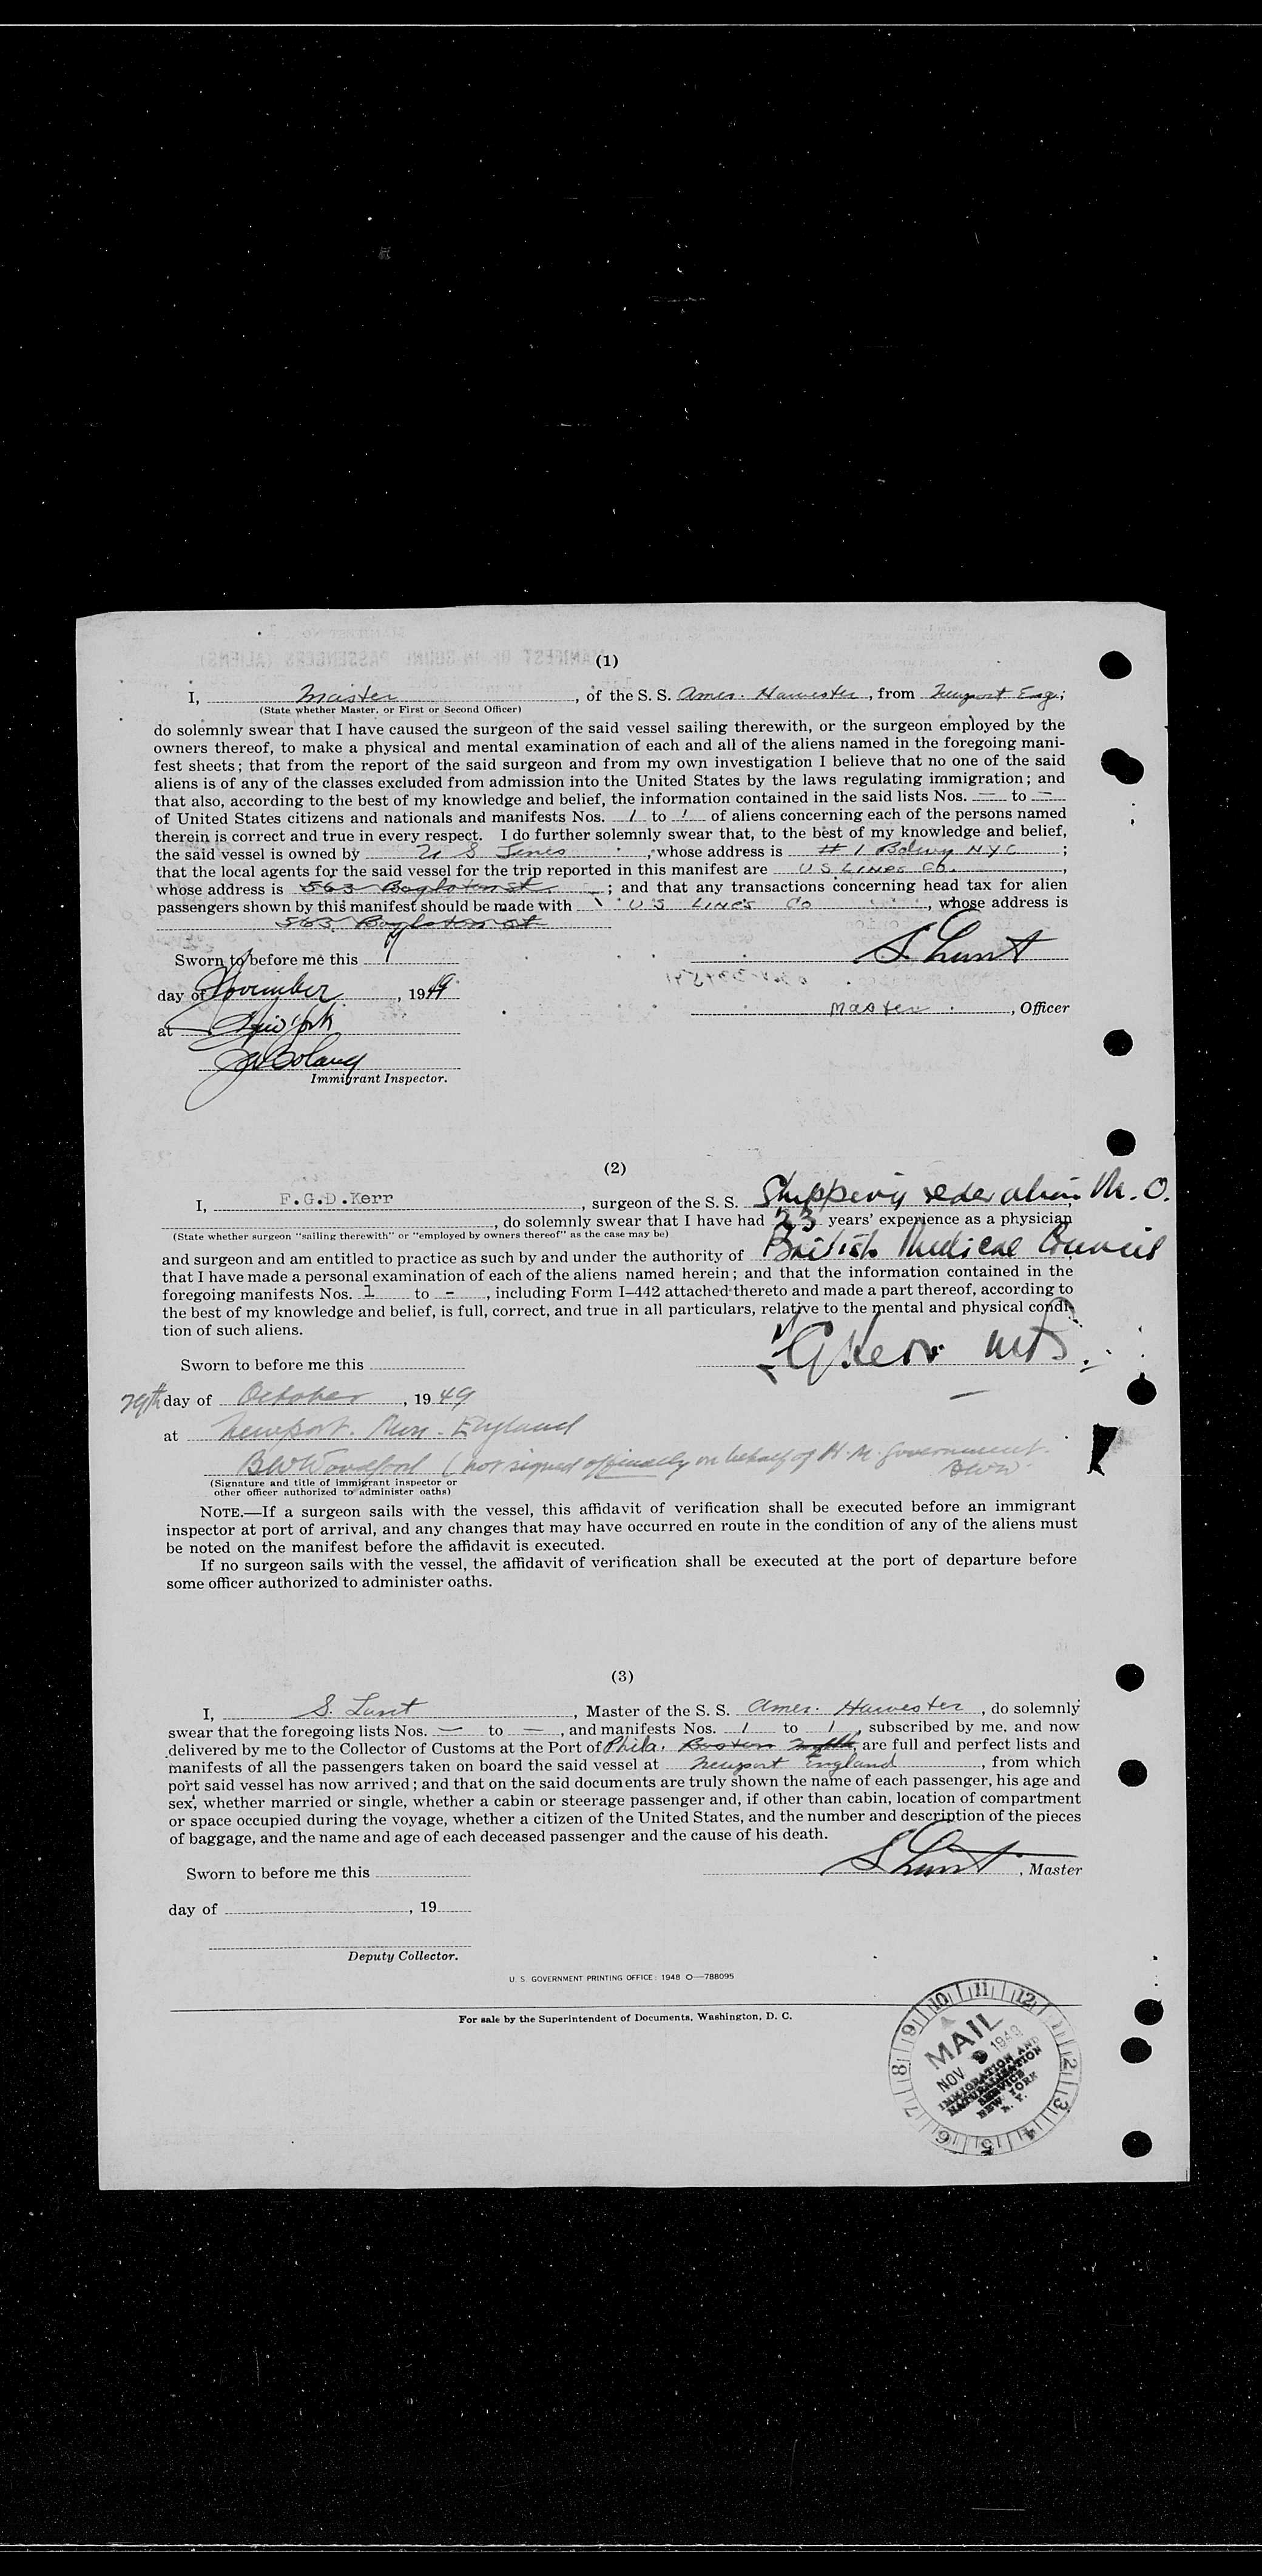 (1)
I, Master, of the S. S. Amer. Harvester, from Newport Eng.;
(State whether Master, or First or Second Officer)
do solemnly swear that I have caused the surgeon of the said vessel sailing therewith, or the surgeon employed by the
owners thereof, to make a physical and mental examination of each and all of the aliens named in the foregoing mani-
fest sheets; that from the report of the said surgeon and from my own investigation I believe that no one of the said
aliens is of any of the classes excluded from admission into the United States by the laws regulating immigration; and
that also, according to the best of my knowledge and belief, the information contained in the said lists Nos. — to —
of United States citizens and nationals and manifests Nos. 1 to 1 of aliens concerning each of the persons named
therein is correct and true in every respect. I do further solemnly swear that, to the best of my knowledge and belief,
the said vessel is owned by U S Lines, whose address is # 1 Bdwy NYC;
that the local agents for the said vessel for the trip reported in this manifest are U S LINES CO.,
whose address is 563 Boylston st.; and that any transactions concerning head tax for alien
passengers shown by this manifest should be made with U S LINES CO, whose address is
563 Boylston st
Sworn to before me this 9
S. Lunt
day of November, 1949
Master, Officer
at New York
Immigrant Inspector.
(2)
I, F.G.D.Kerr, surgeon of the S. S. Shipping Federation M.O.
, do solemnly swear that I have had 23 years' experience as a physician
(State whether surgeon "sailing therewith" or "employed by owners thereof" as the case may be)
and surgeon and am entitled to practice as such by and under the authority of British Medical Council
that I have made a personal examination of each of the aliens named herein; and that the information contained in the
foregoing manifests Nos. 1 to -, including Form I–442 attached thereto and made a part thereof, according to
the best of my knowledge and belief, is full, correct, and true in all particulars, relative to the mental and physical condi-
tion of such aliens.
Sworn to before me this
Kerr MB.
29th day of October, 1949
at Newport. Mon. England
B W Woodford (not signed officially on behalf of H. M. Government.
BWW
(Signature and title of immigrant inspector or
other officer authorized to administer oaths)
NOTE.—If a surgeon sails with the vessel, this affidavit of verification shall be executed before an immigrant
inspector at port of arrival, and any changes that may have occurred en route in the condition of any of the aliens must
be noted on the manifest before the affidavit is executed.
If no surgeon sails with the vessel, the affidavit of verification shall be executed at the port of departure before
some officer authorized to administer oaths.
(3)
I, S. Lunt, Master of the S. S. Amer. Harvester, do solemnly
swear that the foregoing lists Nos. — to —, and manifests Nos. 1 to 1, subscribed by me, and now
delivered by me to the Collector of Customs at the Port of Phila. Boston are full and perfect lists and
manifests of all the passengers taken on board the said vessel at Newport England, from which
port said vessel has now arrived; and that on the said documents are truly shown the name of each passenger, his age and
sex, whether married or single, whether a cabin or steerage passenger and, if other than cabin, location of compartment
or space occupied during the voyage, whether a citizen of the United States, and the number and description of the pieces
of baggage, and the name and age of each deceased passenger and the cause of his death.
Sworn to before me this
S Lunt, Master
day of , 19
Deputy Collector.
U. S. GOVERNMENT PRINTING OFFICE: 1948 O—788095
For sale by the Superintendent of Documents, Washington, D. C.
10 11 12 1 2 3 4 5 6 7 8 9
MAIL
NOV 9 1949
IMMIGRATION AND
NATURALIZATION
SERVICE
NEW YORK
N. Y.